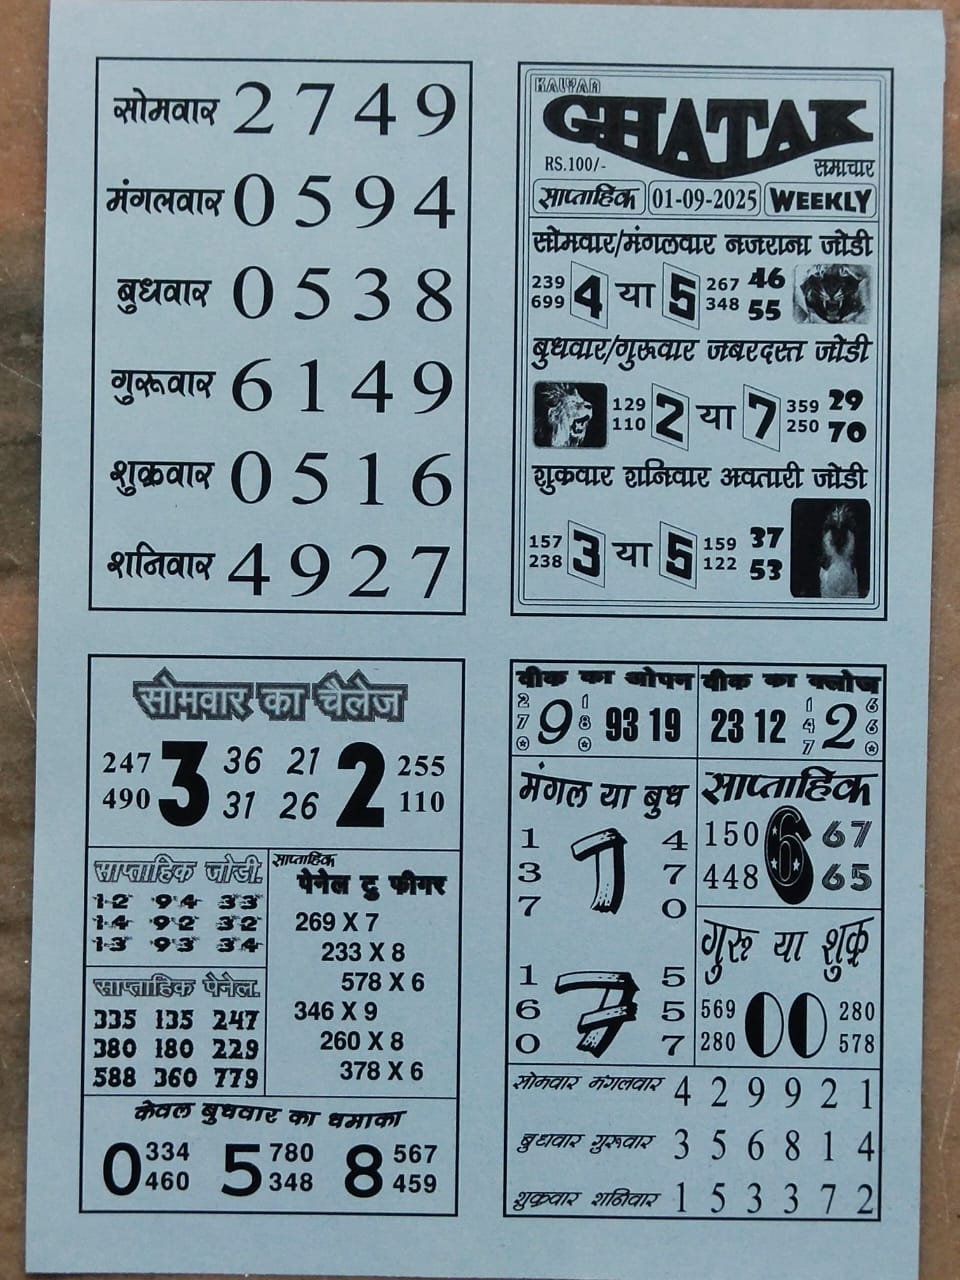 सोमवार 2 7 4 9
मंगलवार 0 5 9 4
बुधवार 0 5 3 8
गुरुवार 6 1 4 9
शुक्रवार 0 5 1 6
शनिवार 4 9 2 7
KALYAN
GHATAK
RS.100/-
समाचार
साप्ताहिक 01-09-2025 WEEKLY
सोमवार/मंगलवार नजराना जोडी
239 699 4 या 5 267 348 46 55
बुधवार/गुरूवार जबरदस्त जोडी
129 110 2 या 7 359 250 29 70
शुक्रवार शनिवार अवतारी जोडी
157 238 3 या 5 159 122 37 53
सोमवार का चैलेज
247 3 36 21 2 255
490 31 26 110
साप्ताहिक जोडी.
12 94 33
14 92 32
13 93 34
साप्ताहिक पेनेल.
335 135 247
380 180 229
588 360 779
साप्ताहिक
पेनेल टु फीगर
269 X 7
233 X 8
578 X 6
346 X 9
260 X 8
378 X 6
केवल बुधवार का धमाका
0 334 5 780 8 567
460 348 459
वीक का ओपन
2 7 0 9 1 8 0 93 19
वीक का क्लोज
23 12 1 4 7 2 6 6 0
मंगल या बुध
1 4
3 1 7
7 0
1 5
6 7 5
0 7
साप्ताहिक
150 6 67
448 65
गुरू या शुक्र
569 0 0 280
280 578
सोमवार मंगलवार 4 2 9 9 2 1
बुधवार गुरूवार 3 5 6 8 1 4
शुक्रवार शनिवार 1 5 3 3 7 2